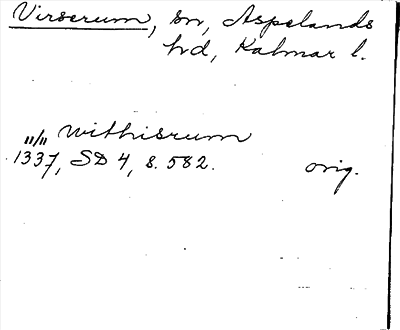 Virserum, sn, Aspelands
hd, Kalmar l.
"/" Withisrum
1337, SD 4, s. 582. orig.